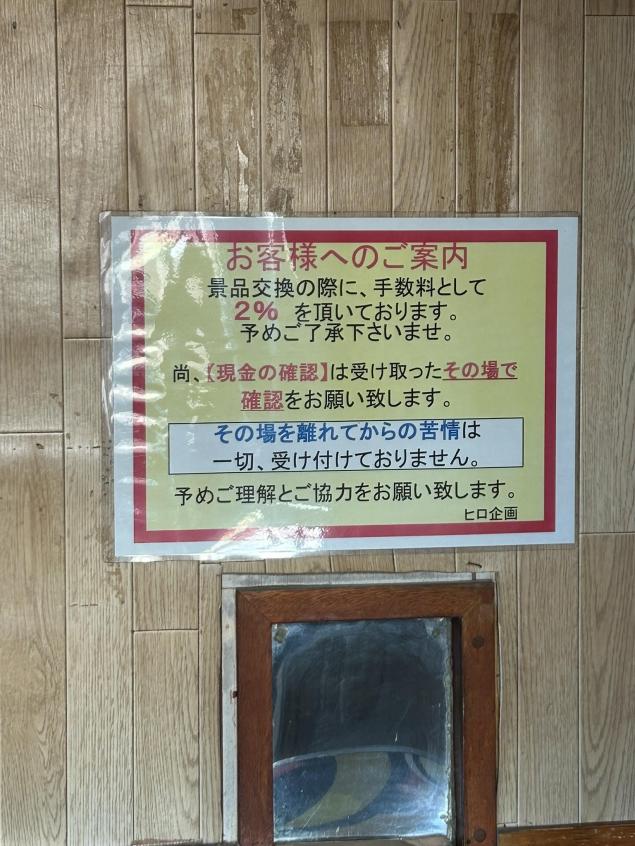 お客様へのご案内
景品交換の際に、手数料として
2% を頂いております。
予めご了承下さいませ。
尚、【現金の確認】は受け取ったその場で
確認をお願い致します。
その場を離れてからの苦情は
一切、受け付けておりません。
予めご理解とご協力をお願い致します。
ヒロ企画